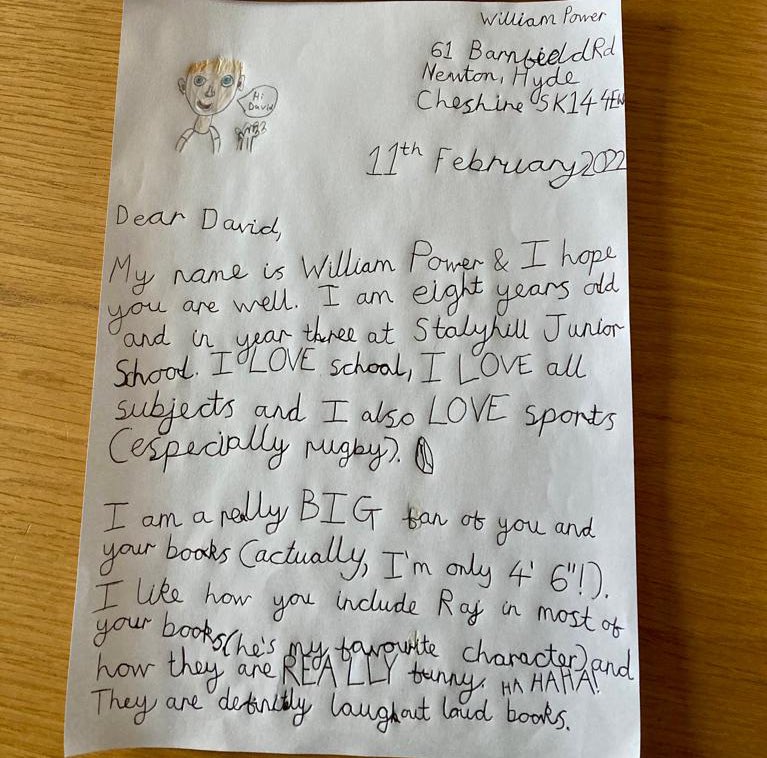 William Power
61 Barnfield Rd
Newton, Hyde
Cheshire SK14 4EW
Hi
David
11th February 2022
Dear David,
My name is William Power & I hope
you are well. I am eight years old
and in year three at Stalyhill Junior
School. I LOVE school, I LOVE all
subjects and I also LOVE sports
(especially rugby).
I am a really BIG fan of you and
your books (actually, I'm only 4' 6"!).
I like how you include Raj in most of
your books (he's my favourite character) and
how they are REALLY funny. HA HAHA!
They are definitly laugh out loud books.